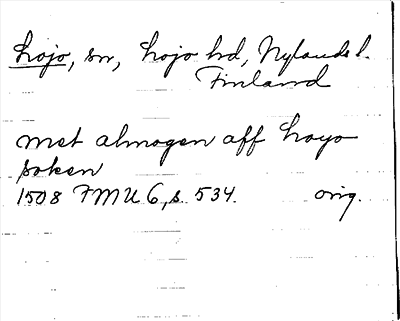 Lojo, sn, Lojo hd, Nylands l.
Finland
met almogen aff Loyo
soken
1508 FMU 6, s. 534. orig.